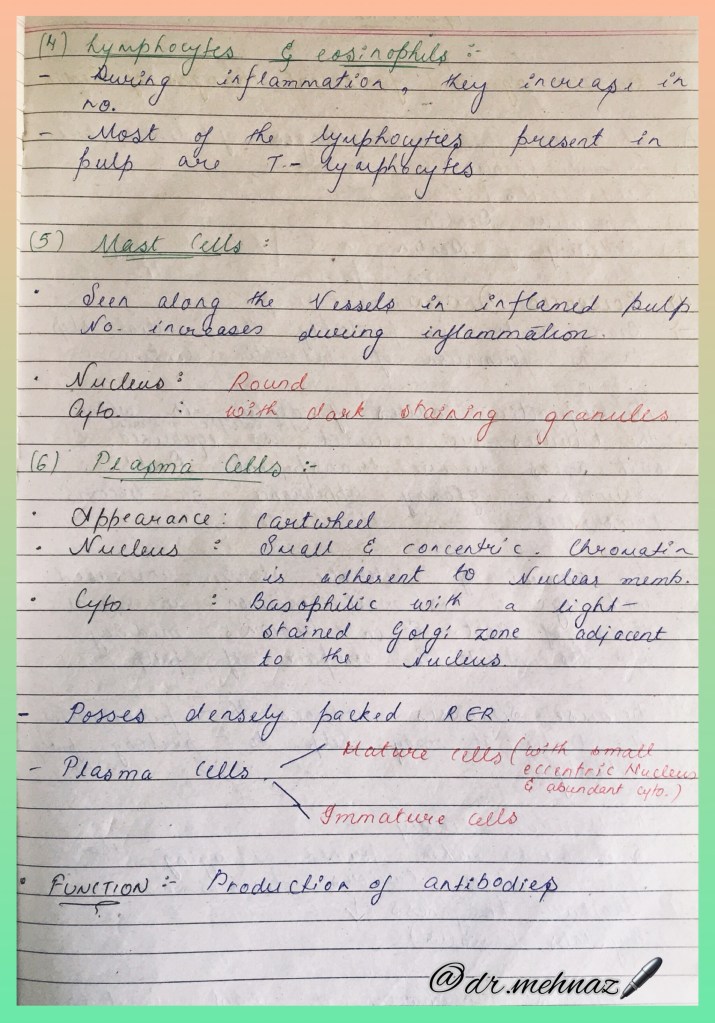 (4) Lymphocytes & eosinophils :-
- During inflammation, they increase in
no.
- Most of the lymphocytes present in
pulp are T-lymphocytes
(5) Mast Cells :
• Seen along the Vessels in inflamed pulp
No. increases during inflammation.
• Nucleus : Round
Cyto. : with dark staining granules
(6) Plasma Cells :-
• Appearance : Cartwheel
• Nucleus : Small & concentric. Chromatin
is adherent to Nuclear memb.
• Cyto. : Basophilic with a light-
stained Golgi zone adjacent
to the Nucleus.
- Posses densely packed RER.
Mature cells (with small
eccentric Nucleus
& abundant cyto.)
- Plasma Cells
Immature cells
• FUNCTION :- Production of antibodies
@dr.mehnaz